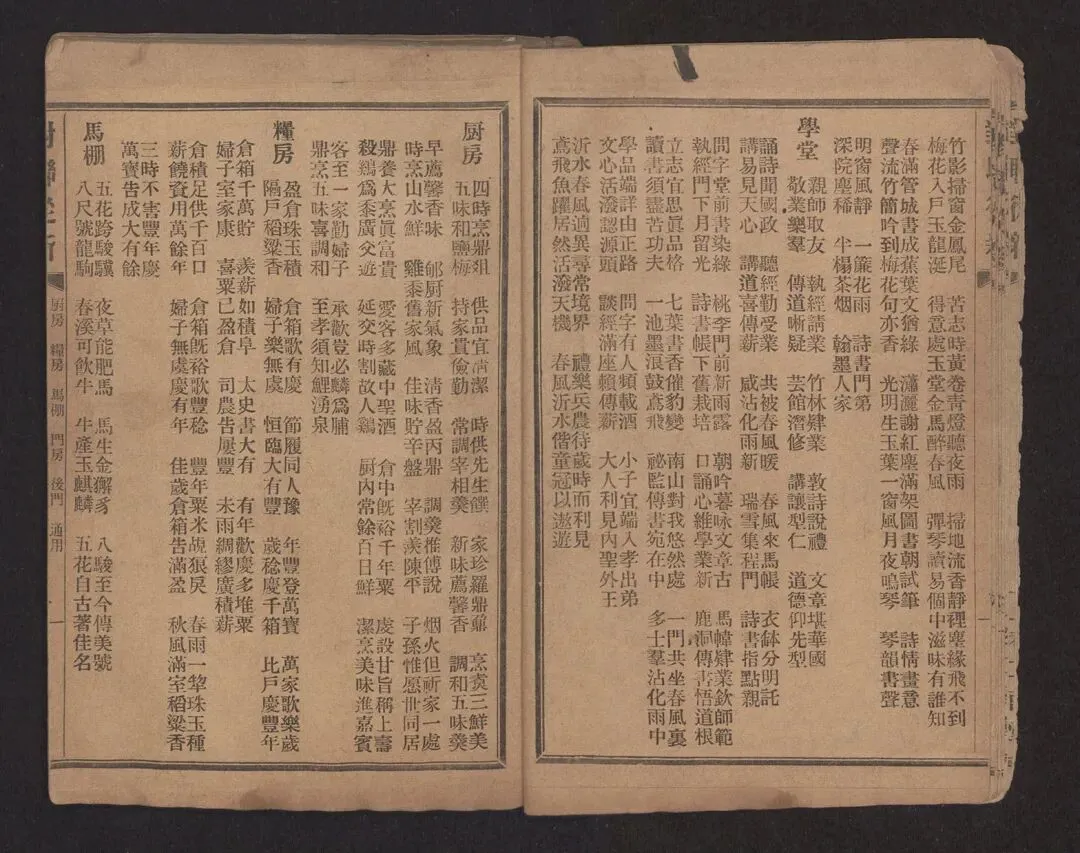 竹影掃窗金鳳尾 苦志時黃卷青燈聽夜雨 掃地流香靜裡塵緣飛不到
梅花入戶玉龍涎 得意處玉堂金馬醉春風 彈琴讀易個中滋味有誰知
春滿管城書成蕉葉文猶綠 瀟灑謝紅塵滿架圖書朝試筆 詩情畫意
聲流竹簡吟到梅花句亦香 光明生玉葉一窗風月夜鳴琴 琴韻書聲
明窗風靜 一簾花雨 詩書門第
深院塵稀 半榻茶烟 翰墨人家
學堂
親師取友 執經請業 竹林肄業 敦詩說禮 文章堪華國
敬業樂羣 傳道晰疑 芸館潛修 講讓型仁 道德仰先型
誦詩聞國政 聽經勤受業 共被春風暖 春風來馬帳 衣鉢分明託
講易見天心 講道喜傳薪 咸沾化雨新 瑞雪集程門 詩書指點親
問字堂前書染綠 桃李門前新雨露 朝吟暮咏文章古 馬幃肄業欽師範
執經門下月留光 詩書帳下舊栽培 口誦心維學業新 鹿洞傳書悟道根
立志宜思眞品格 七葉書香催豹變 南山對我悠然處 一門共坐春風裏
讀書須盡苦功夫 一池墨浪鼓鳶飛 祕監傳書宛在中 多士羣沾化雨中
學品端詳由正路 問字有人頻載酒 小子宜端入孝出弟
文心活潑認源頭 談經滿座賴傳薪 大人利見內聖外王
沂水春風適異尋常境界 禮樂兵農待歲時而利見
鳶飛魚躍居然活潑天機 春風沂水偕童冠以遨遊
厨房
四時烹鼎俎 供品宜淸潔 時供先生饌 家珍羅鼎鼐 烹炰三鮮美
五味和鹽梅 持家貴儉勤 常調宰相羹 新味薦馨香 調和五味羹
早薦馨香味 郇厨新氣象 清香盈丙鼎 調羹推傅說 烟火但祈家一處
時烹山水鮮 雞黍舊家風 佳味貯辛盤 宰割羨陳平 子孫惟愿世同居
鼎養大烹眞富貴 愛客多藏中聖酒 倉中旣裕千年粟 虔設甘旨稱上壽
殺鷄爲黍廣交遊 延交時割故人鷄 厨內常餘百日鮮 潔烹美味進嘉賓
客至一家勤婦子 承歡豈必麟爲脯
鼎烹五味喜調和 至孝須知鯉湧泉
糧房
盈倉珠玉積 倉箱歌有慶 節履同人豫 年豐登萬寶 萬家歌樂歲
隔戶稻粱香 婦子樂無虞 恒臨大有豐 歲稔慶千箱 比戶慶豐年
倉箱千萬貯 羨薪如積阜 太史書大有 有年歡慶多堆粟
婦子室家康 喜粟已盈倉 司農告屢豐 未雨綢繆廣積薪
倉積足供千百口 倉箱旣裕歌豐稔 豐年粟米觇狼戾 春雨一犂珠玉種
薪饒資用萬餘年 婦子無虞慶有年 佳歲倉箱告滿盈 秋風滿室稻粱香
三時不害豐年慶
萬寶告成大有餘
馬棚
五花跨駿驥 夜草能肥馬 馬生金獬豸 八駿至今傳美號
八尺號龍駒 春溪可飲牛 牛產玉麒麟 五花自古著佳名
厨房 糧房 馬棚 門房 後門 通用